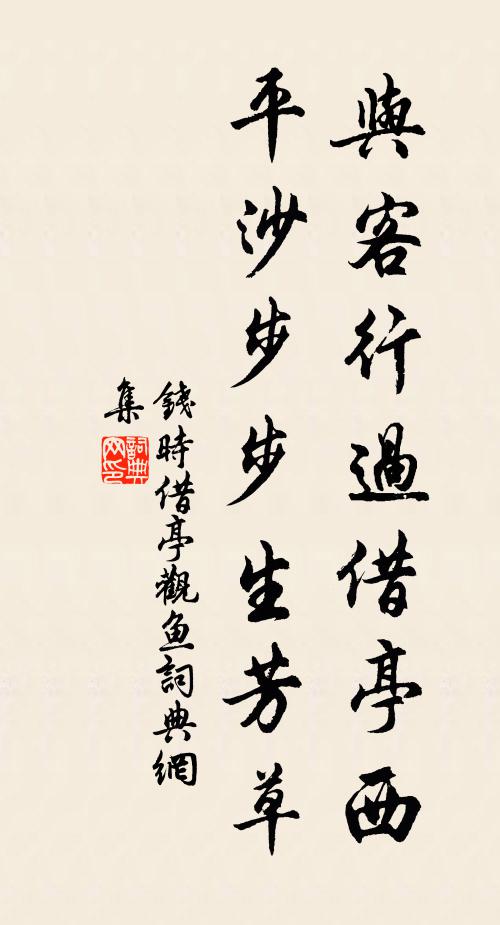 與客行過借亭西
平沙步步生芳草
錢時借亭觀魚詞典網
集
詞典
网印